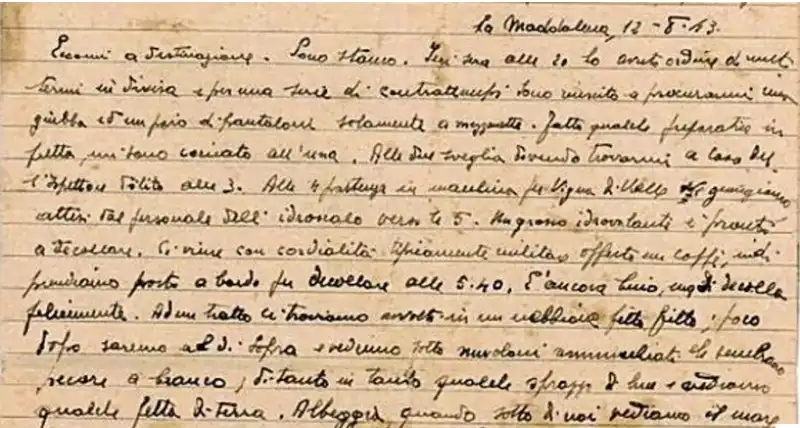 La Maddalena, 12-8-43.
Eccomi a destinazione. Sono stanco. Ieri sera alle 20 ho avuto ordine di met-
termi in divisa e per una serie di contrattempi sono riuscito a procurarmi una
giubba ed un paio di pantaloni solamente a mezzanotte. Fatto qualche preparativo in
fretta, mi sono coricato all'una. Alle due sveglia dovendo trovarmi a casa del
l'Ispettore Polito alle 3. Alle 4 partenza in macchina per Vigna di Valle giungiamo
attesi dal personale dell'idroscalo verso le 5. Un grosso idrovolante è pronto
a decollare. Ci viene con cordialità tipicamente militare offerto un caffè, indi
prendiamo posto a bordo per decollare alle 5.40. È ancora buio, si decolla
felicemente. Ad un tratto ci troviamo avvolti in un nebbione fitto fitto; poco
dopo saremo al di sopra e vedremo sotto nuvoloni ammucchiati che sembrano
pecore a branco; di tanto in tanto qualche sprazzo di luce e vediamo
qualche fetta di terra. Albeggia, quando sotto di noi vediamo il mare